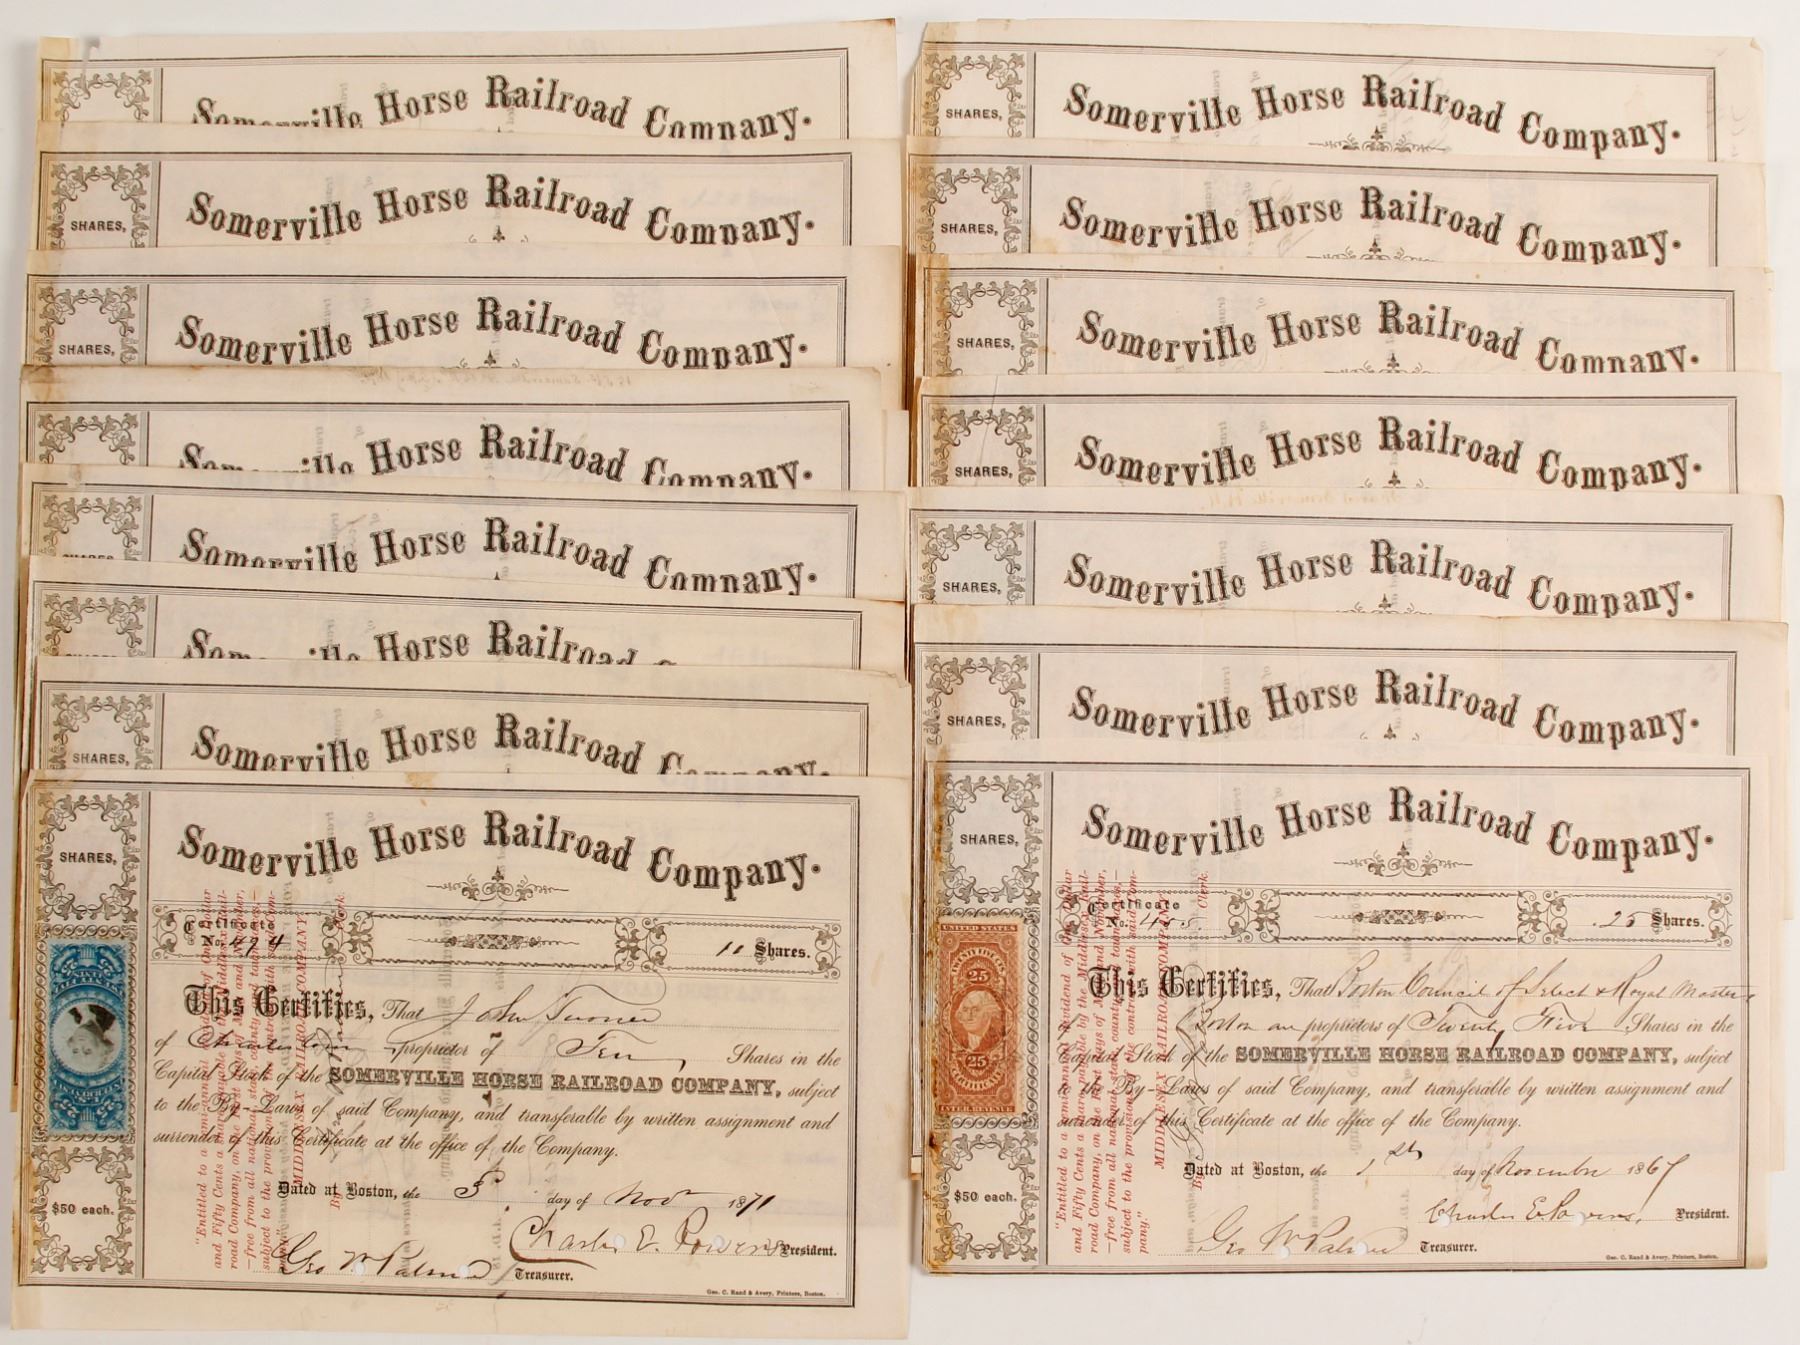 Somerville Horse Railroad Company.
SHARES,
Somerville Horse Railroad Company.
SHARES,
Somerville Horse Railroad Company.
Somerville Horse Railroad Company.
SHARES,
Somerville Horse Railroad Company.
Somerville Horse Railroad
SHARES,
Somerville Horse Railroad Company.
SHARES,
Somerville Horse Railroad Company.
Certificate
No. 494
10 Shares.
This Certifies, That John Turner
of Charlestown proprietor of Ten Shares in the
Capital Stock of the SOMERVILLE HORSE RAILROAD COMPANY, subject
to the By-Laws of said Company, and transferable by written assignment and
surrender of this Certificate at the office of the Company.
Dated at Boston, the 3 day of Novr 1871
$50 each.
Charles E. Powers President.
Geo W Palmer Treasurer.
Geo. C. Rand & Avery, Printers, Boston.
"Entitled to a semi-annual dividend of One Dollar
and Fifty Cents a share, payable by the Middlesex Rail-
road Company, on the First days of May and November,
—free from all national, state, county and town taxes,—
subject to the provisions of the contract with said Com-
pany."
MIDDLESEX RAILROAD COMPANY,
By
Clerk.
SHARES,
Somerville Horse Railroad Company.
SHARES,
Somerville Horse Railroad Company.
SHARES,
Somerville Horse Railroad Company.
SHARES,
Somerville Horse Railroad Company.
SHARES,
Somerville Horse Railroad Company.
SHARES,
Somerville Horse Railroad Company.
SHARES,
Somerville Horse Railroad Company.
Certificate
No. 405.
25 Shares.
This Certifies, That Boston Council of Select & Royal Masters
Boston are proprietors of Twenty Five Shares in the
Capital Stock of the SOMERVILLE HORSE RAILROAD COMPANY, subject
to the By-Laws of said Company, and transferable by written assignment and
surrender of this Certificate at the office of the Company.
Dated at Boston, the 1st day of November 1867
$50 each.
Charles E. Powers, President.
Geo W Palmer Treasurer.
Geo. C. Rand & Avery, Printers, Boston.
UNITED STATES
25
25
INTER. REVENUE
"Entitled to a semi-annual dividend of One Dollar
and Fifty Cents a share, payable by the Middlesex Rail-
road Company, on the First days of May and November,
—free from all national, state, county and town taxes,—
subject to the provisions of the contract with said Com-
pany."
MIDDLESEX RAILROAD COMPANY,
By
Clerk.